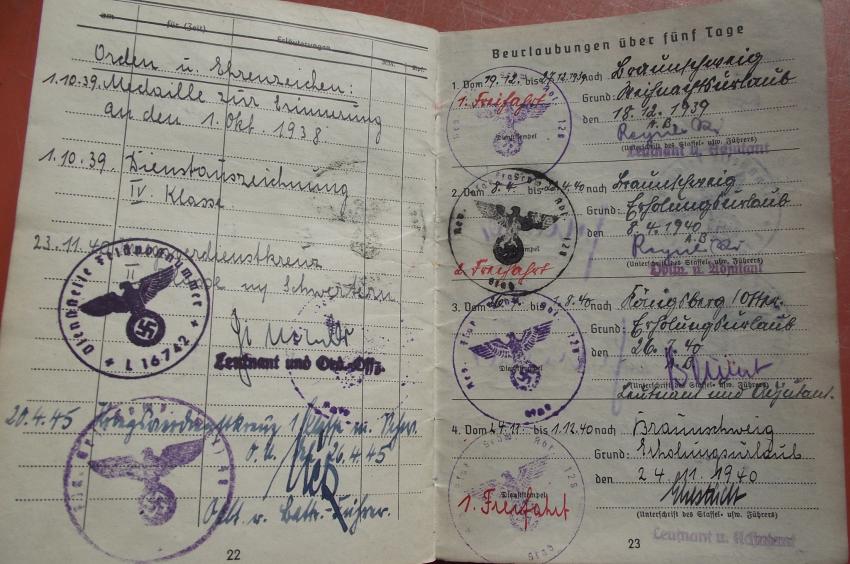 am
für (Zeit)
Erläuterungen
Orden u. Ehrenzeichen:
1.10.39. Medaille zur Erinnerung
an den 1. Okt. 1938
1.10.39. Dienstauszeichnung
IV. Klasse
23.11.40
II Klasse m Schwertern
Dienststelle Feldpostnummer
* L 16742 *
Leutnant und Ord.-Offz.
20.4.45 Kriegsverdienstkreuz 1. Klasse m. Schw.
O.U. 26.4.45
Oblt. u. Battr.-Führer.
22
Beurlaubungen über fünf Tage
1. Vom 19.12. bis 27.12.1939 nach Braunschweig
1. Freifahrt
Grund: Weihnachtsurlaub
den 18.12. 1939
Dienststempel
(Unterschrift des Staffel- usw. Führers)
Leutnant u. Adjutant
2. Vom 8.4. bis 4.40 nach Braunschweig
Grund: Erholungsurlaub
den 8.4.1940
2. Freifahrt
(Unterschrift des Staffel- usw. Führers)
Oblt. u. Adjutant
3. Vom bis 1.8.40 nach Königsberg
Grund: Erholungsurlaub
den 26.7.40
Dienststempel
(Unterschrift des Staffel- usw. Führers)
Leutnant und Adjutant.
4. Vom 24.11. bis 1.12.40 nach Braunschweig
Grund: Erholungsurlaub
den 24.11.1940
Dienststempel
1. Freifahrt
(Unterschrift des Staffel- usw. Führers)
Leutnant u. Adjutant
23